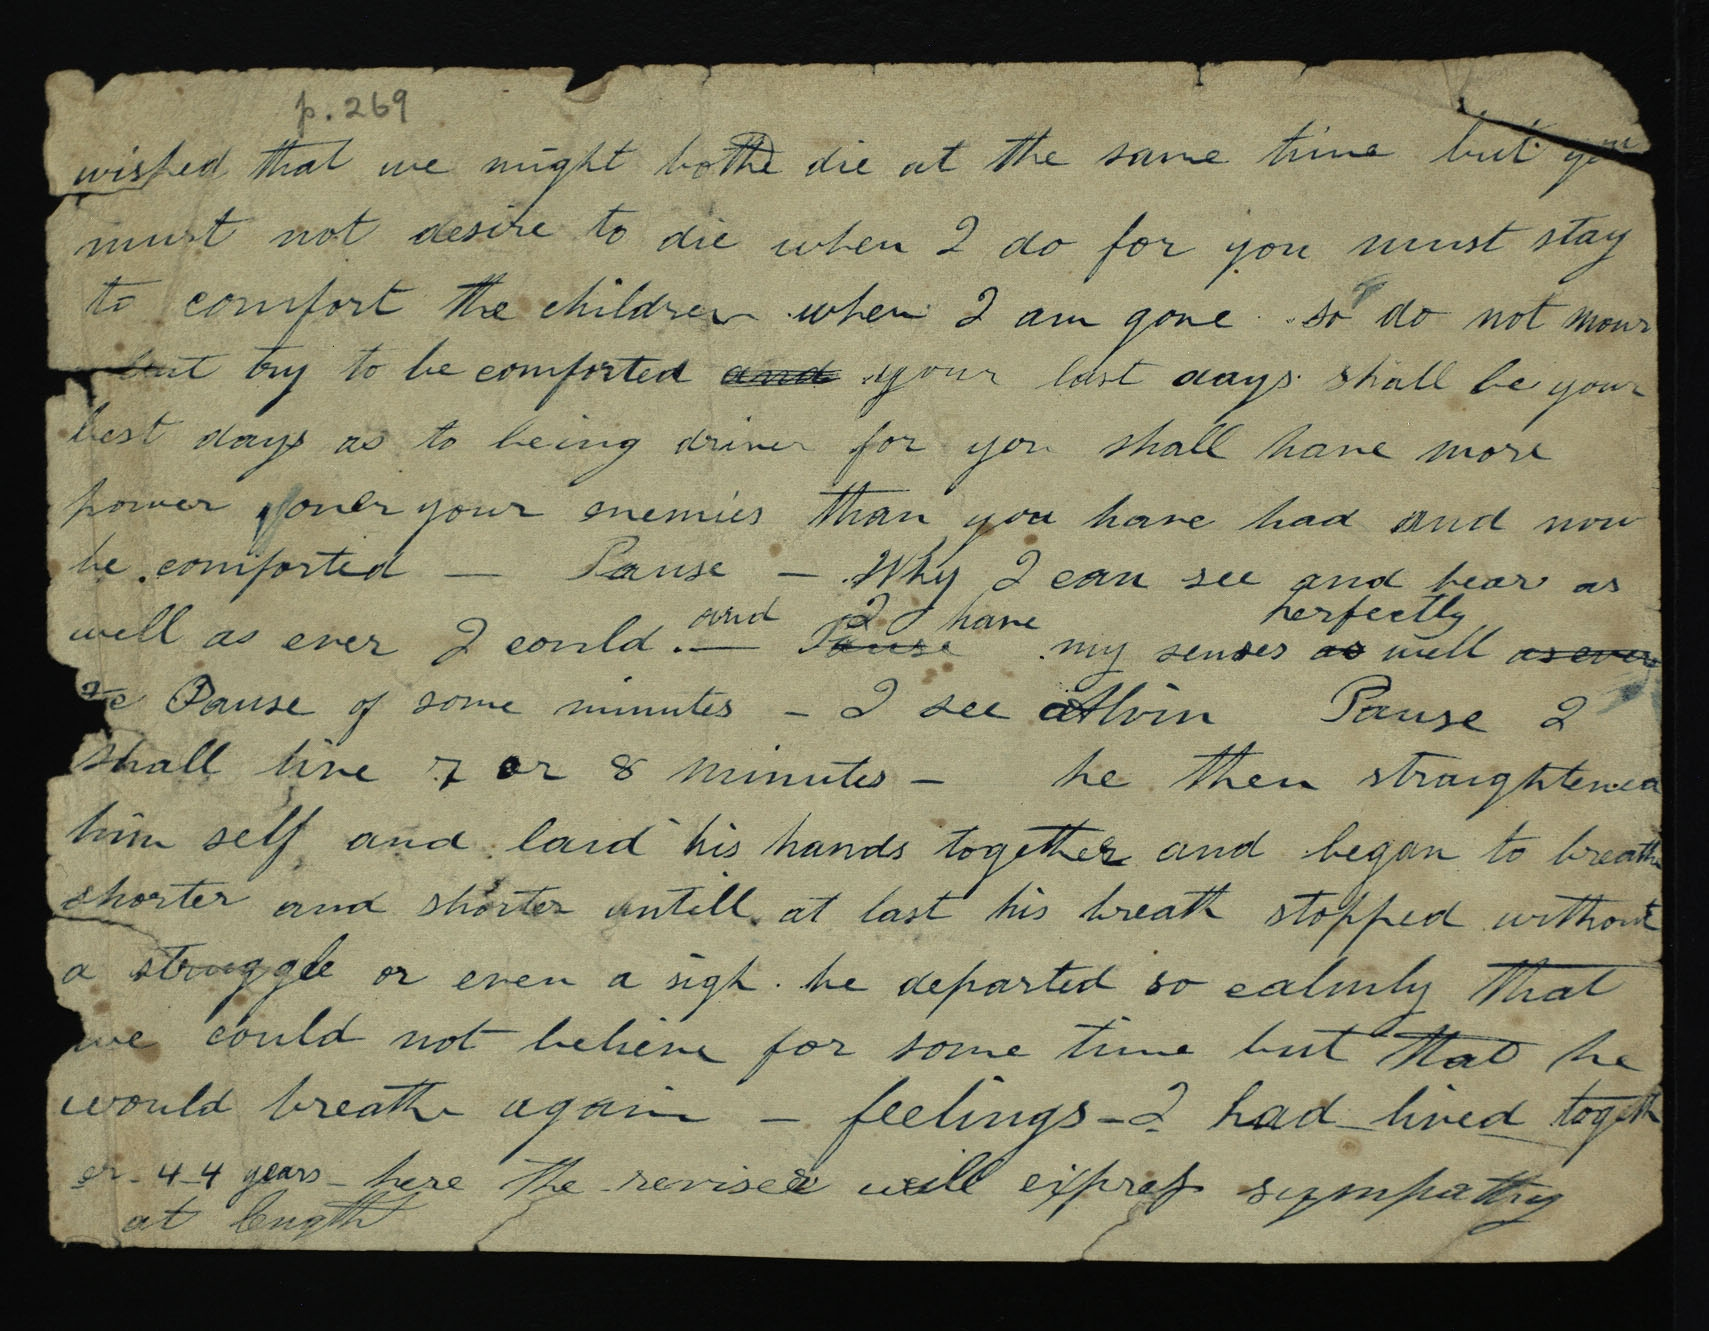 p. 269
wished that we might bothe die at the same time but you
must not desire to die when I do for you must stay
to comfort the children when I am gone so do not mour
but try to be comforted and your last days shall be your
best days as to being driven for you shall have more
power over your enemies than you have had and now
be comforted — Pause — Why I can see and hear as
and I have perfectly
well as ever I could. — Pause my senses as well as ever
Pause of some minutes – I see Alvin Pause I
shall live 7 or 8 minutes – he then straightened
him self and laid his hands together and began to breathe
shorter and shorter untill at last his breath stopped without
a struggle or even a sigh. he departed so calmly that
we could not believe for some time but that he
would breathe again – feelings – I had lived togeth
er 44 years – here the reviser will express sympathy
at length